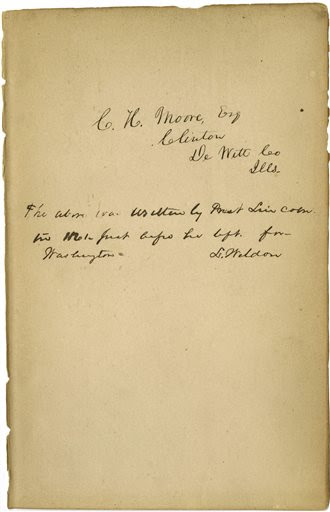 C. H. Moore, Esq
Clinton
De Witt Co
Ills.
The above was written by Prest Lincoln
in 1861 just before he left for
Washington
L. Weldon